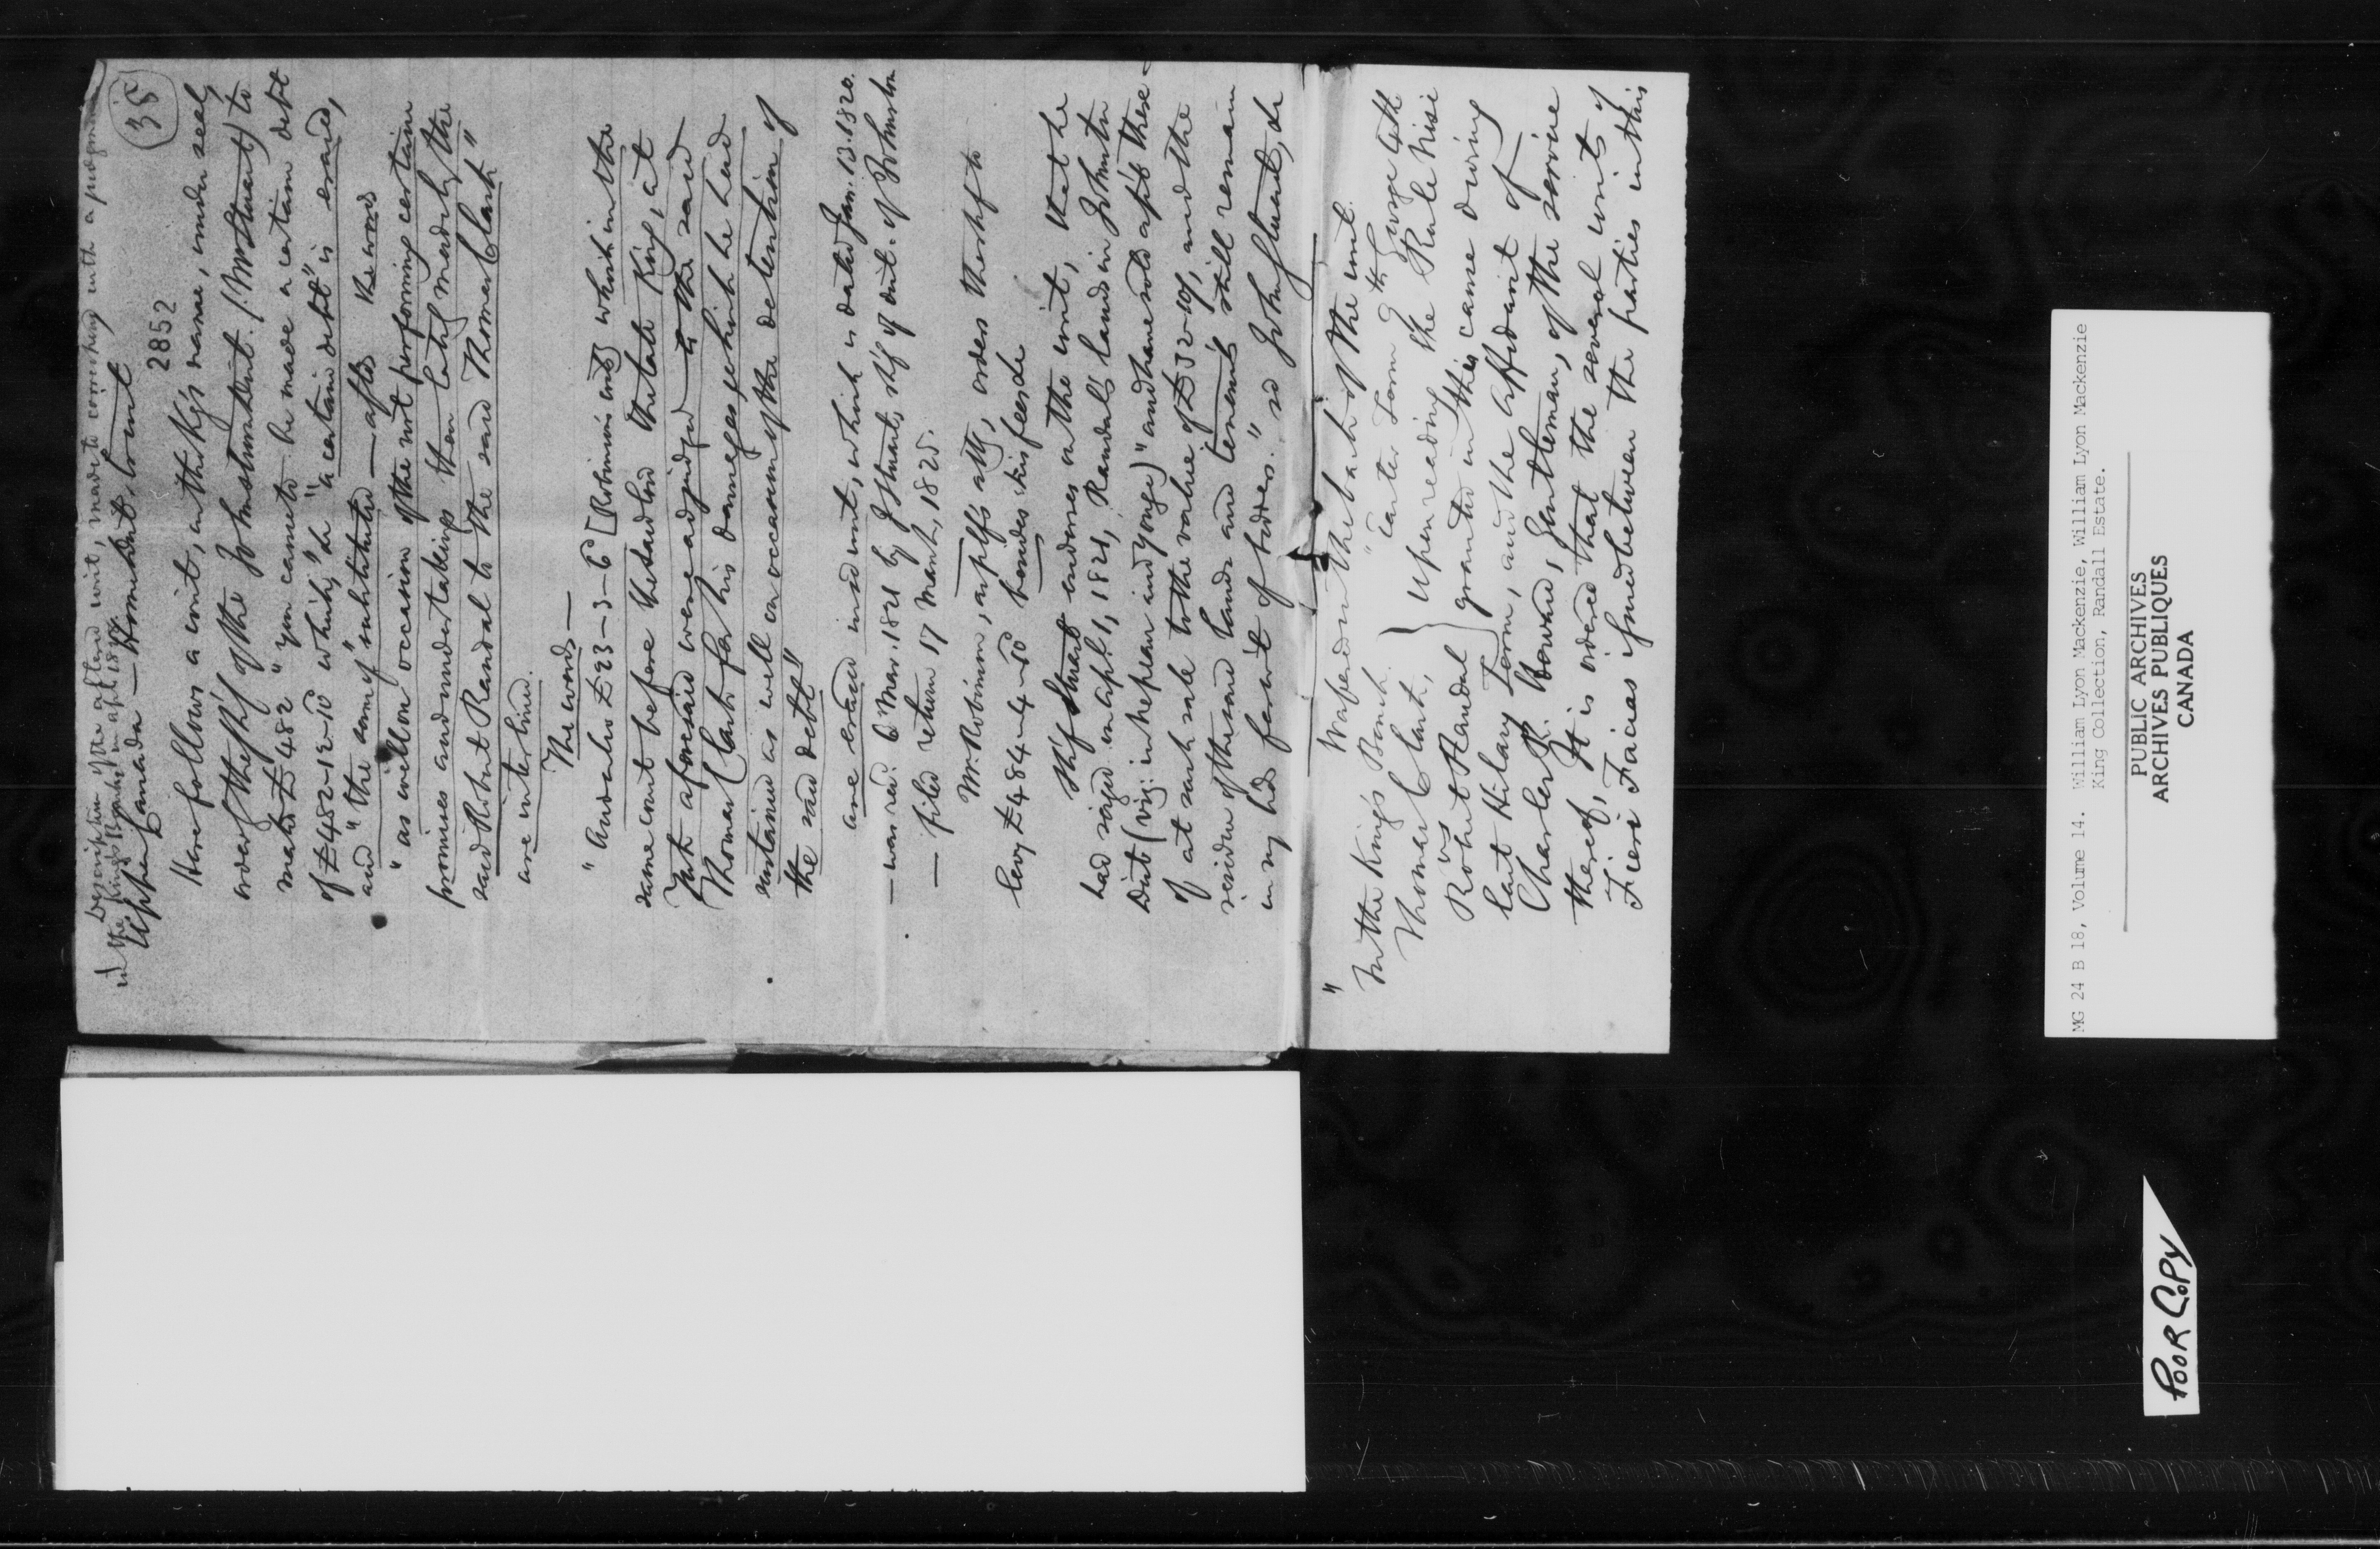 Description of the altered writ, made to correspond with a judgment
in the King's Bench in Apl 1819
35
2852
Upper Canada — Home Dist. Court
Here follows a writ, in the Kg's name, under seal,
order'g the sh'ff of the Johnstown dist. (Mr Stuart) to
make £482 "you cause to be made a certain debt
of £482-12-10 which," &c "a certain debt" is erased,
and "the sum of" substituted — after the word
"as well on occasion of the not performing certain
promises and undertakings then lately made by the
said Robert Randal to the said Thomas Clark"
are interlined.
The words —
"And also £23-3-6 [Robinson's writ] which in the
same court before the said lord the late King, at
York aforesaid were adjudged to the said
Thomas Clark for his damages which he had
sustained as well on occasion of the detention of
the said debt"
are erased in sd writ, which is dated Jan. 13. 1820.
— was recd. 6 Mar. 1821 by J Stuart, sh'f of dist. of Johnston
— filed return 17 March, 1825.
Mr. Robinson, as plff's atty, orders the sh'f to
levy £484-4-10 besides his fees &c
Sh'f Stuart endorses on the writ, that he
had seized in Apl. 1, 1821, Randal's lands in Johnstn
Dist (viz: in Nepean and Yonge) "and have sold apt there-
of at such sale to the value of £32-10/, and the
residue of the said lands and tenem'ts still remain
in my h'ds for w't of bidders." sd John Stuart, Sh
Wafered on the back of the writ.
"In the King's Bench. "Easter Term 9th George 4th
Thomas Clark, } Upon reading the Rule Nisi
vs
Robert Randal } granted in this cause during
last Hilary Term, and the affidavit of
Charles R. Howard, Gentleman, of the service
thereof, It is ordered that the several writs of
Fieri Facias issued between the parties in this
MG 24 B 18, Volume 14. William Lyon Mackenzie, William Lyon Mackenzie
King Collection, Randall Estate.
PUBLIC ARCHIVES
ARCHIVES PUBLIQUES
CANADA
POOR COPY